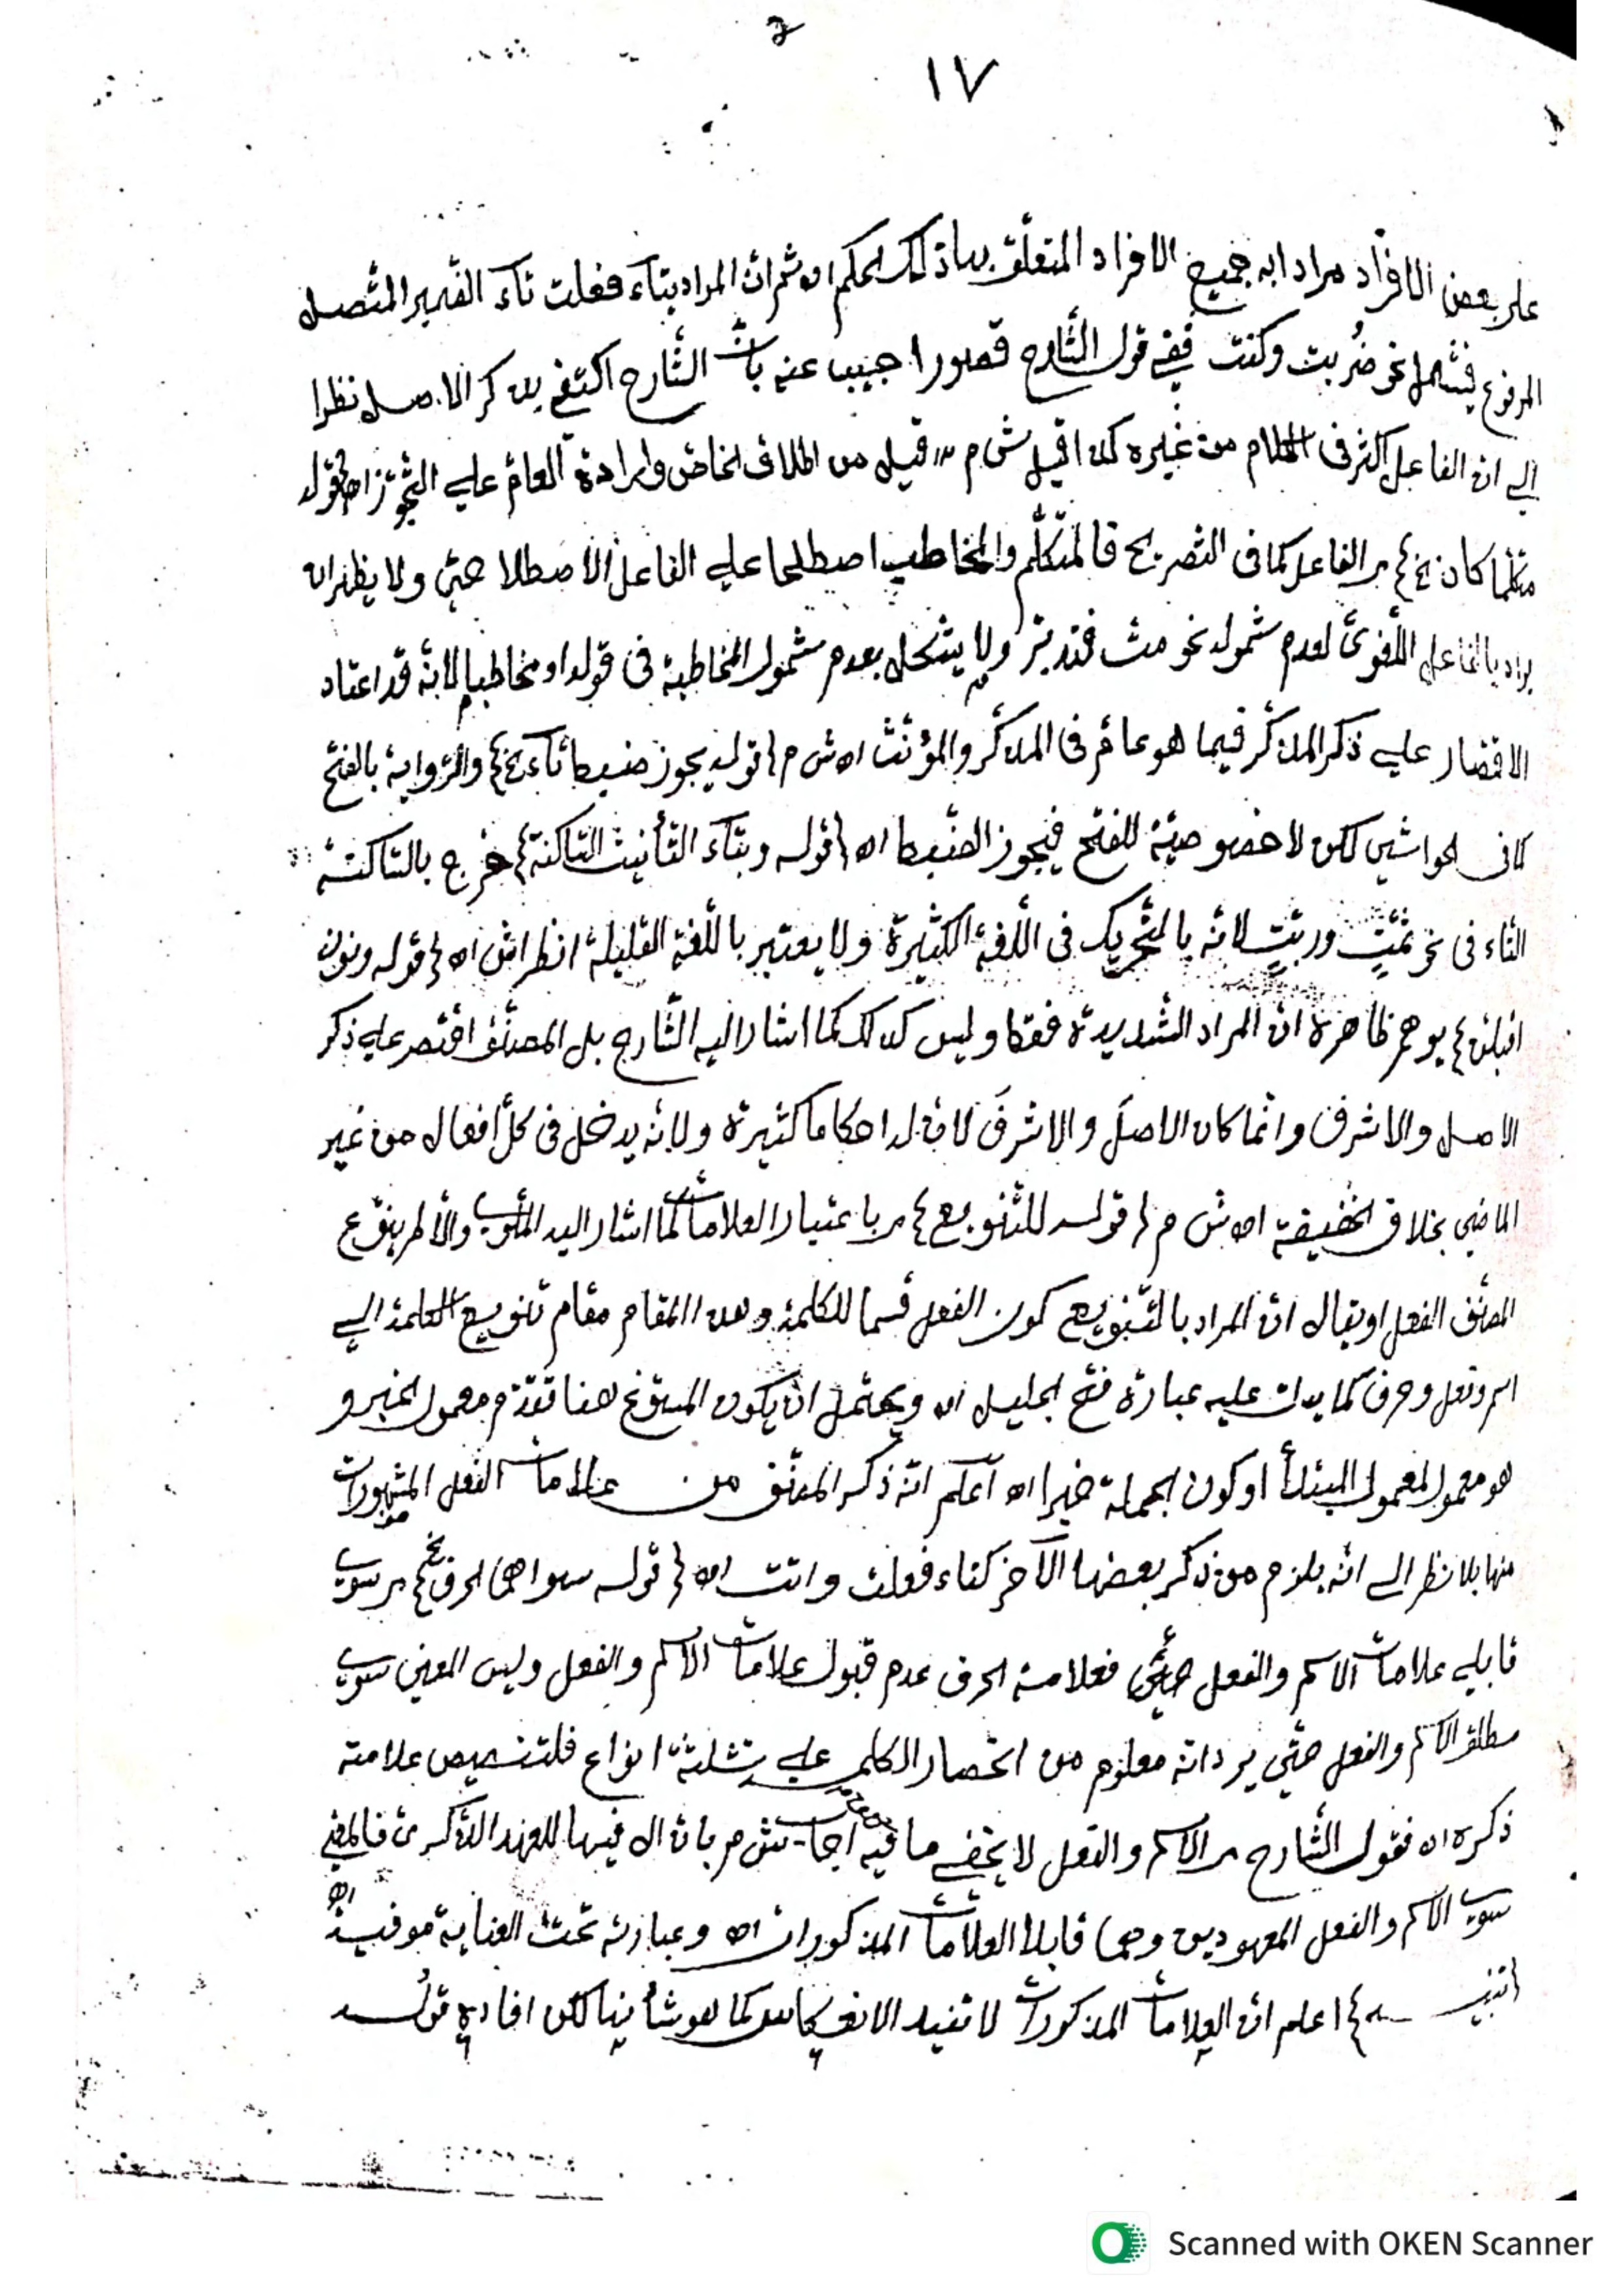 ١٧
على بعض الافراد مرادا به جميع الافراد المتعلّق بها ذلك الحكم اه ثم انّ المراد بتاء فعلت تاء الضّمير المتّصل
المرفوع فيشمل نحو ضُربت وكنت ففي قول الشّارح قصور اجيب عنه بانّ الشّارح اكتفى بذكر الاصل نظرا
إلى ان الفاعل اكثر في الكلام من غيره كذا قيل ش م قيل من اطلاق الخاصّ وارادة العامّ على التّجوّز اه قوله
متكلما كان الفاعل كما في التصريح فالمتكلّم والمخاطب اصطلحا على الفاعل الاصطلاحيّ ولا يظهر ان
يراد بالفاعل اللّغويّ لعدم شموله نحو متّ فتدبّر ولا يشكل بعدم شمول المخاطبة في قوله او مخاطبا لانّه قد اعتاد
الاقتصار على ذكر المذكّر فيما هو عامّ في المذكّر والمؤنّث اه ش م قوله يجوز ضبط تاء والرّواية بالفتح
كما في الحواشي لكن لا خصوصيّة للفتح فيجوز الضّبط اه قوله وبتاء التّأنيث السّاكنة خرج بالسّاكنة
التاء في نحو ثمّتِ وربتِ لانّه بالتّحريك في اللّغة الكثيرة ولا يعتبر باللّغة القليلة انظر اش اه قوله ونون
اقبلنّ يوهم ظاهره انّ المراد الشّديدة فقط وليس كذلك كما اشار اليه الشّارح بل المصنّف اقتصر على ذكر
الاصل والاشرف وانّما كان الاصلَ والاشرفَ لانّ له احكاما كثيرة ولانّه يدخل في كلّ افعال من غير
الماضي بخلاف الخفيفة اه ش م قوله للتّنويع باعتبار العلامات كما اشار اليه والأظهر بنوع
المصنّف الفعل او يقال انّ المراد بالتّنويع كون الفعل قسما للكلمة وهذا المقام مقام تنويع الكلمة إلى
اسم وفعل وحرف كما يدلّ عليه عبارة فتح الجليل اه ويحتمل ان يكون المسوّغ هنا تقدّم معمول الخبر و
هو معمول لمعمول المبتدأ او كون الجملة خبرا اه اعلم انّه ذكر المصنّف من علامات الفعل المشهورات
منها بلا نظر إلى انّه يلزم من ذكر بعضها الآخر كتاء فعلت واتت اه قوله سواهما الحرف سوى
قابلي علامات الاسم والفعل فعلامة الحرف عدم قبول علامات الاسم والفعل وليس المعنى سوى
مطلق الاسم والفعل حتّى يرد انّه معلوم من انحصار الكلم على ثلثة انواع فلتنصيص علامته
ذكره اه فقول الشّارح الاسم والفعل لا يخفى ما فيه اجاب ش م بانّ ال فيها للعهد الذّكريّ فالمعنى
سوى الاسم والفعل المعهودين وهما قابلا العلامات المذكورات اه وعبارته تحت العناية موفية اه
تنبيه اعلم انّ العلامات المذكورات لا تفيد الانعكاس كما هو شأنها لكن افاده قوله
Scanned with OKEN Scanner